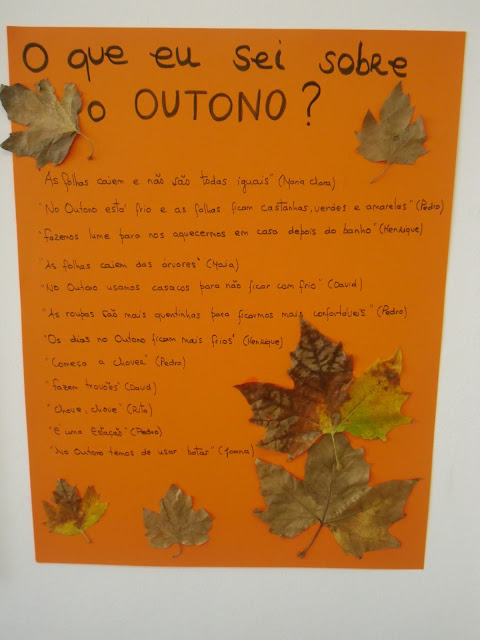 O que eu sei sobre
o OUTONO?
As folhas caiem e não são todas iguais" (Maria Clara)
"No Outono está frio e as folhas ficam castanhas, verdes e amarelas" (Pedro)
"Fazemos lume para nos aquecermos em casa depois do banho" (Henrique)
"As folhas caiem das árvores" (Maia)
"No Outono usamos casacos para não ficar com frio" (David)
"As roupas são mais quentinhas para ficarmos mais confortáveis" (Pedro)
"Os dias no Outono ficam mais frios" (Henrique)
"Começa a chover" (Pedro)
"Fazem trovões" (David)
"Chove, chove" (Rita)
"É uma Estação" (Pedro)
"No Outono temos de usar botas" (Joana)